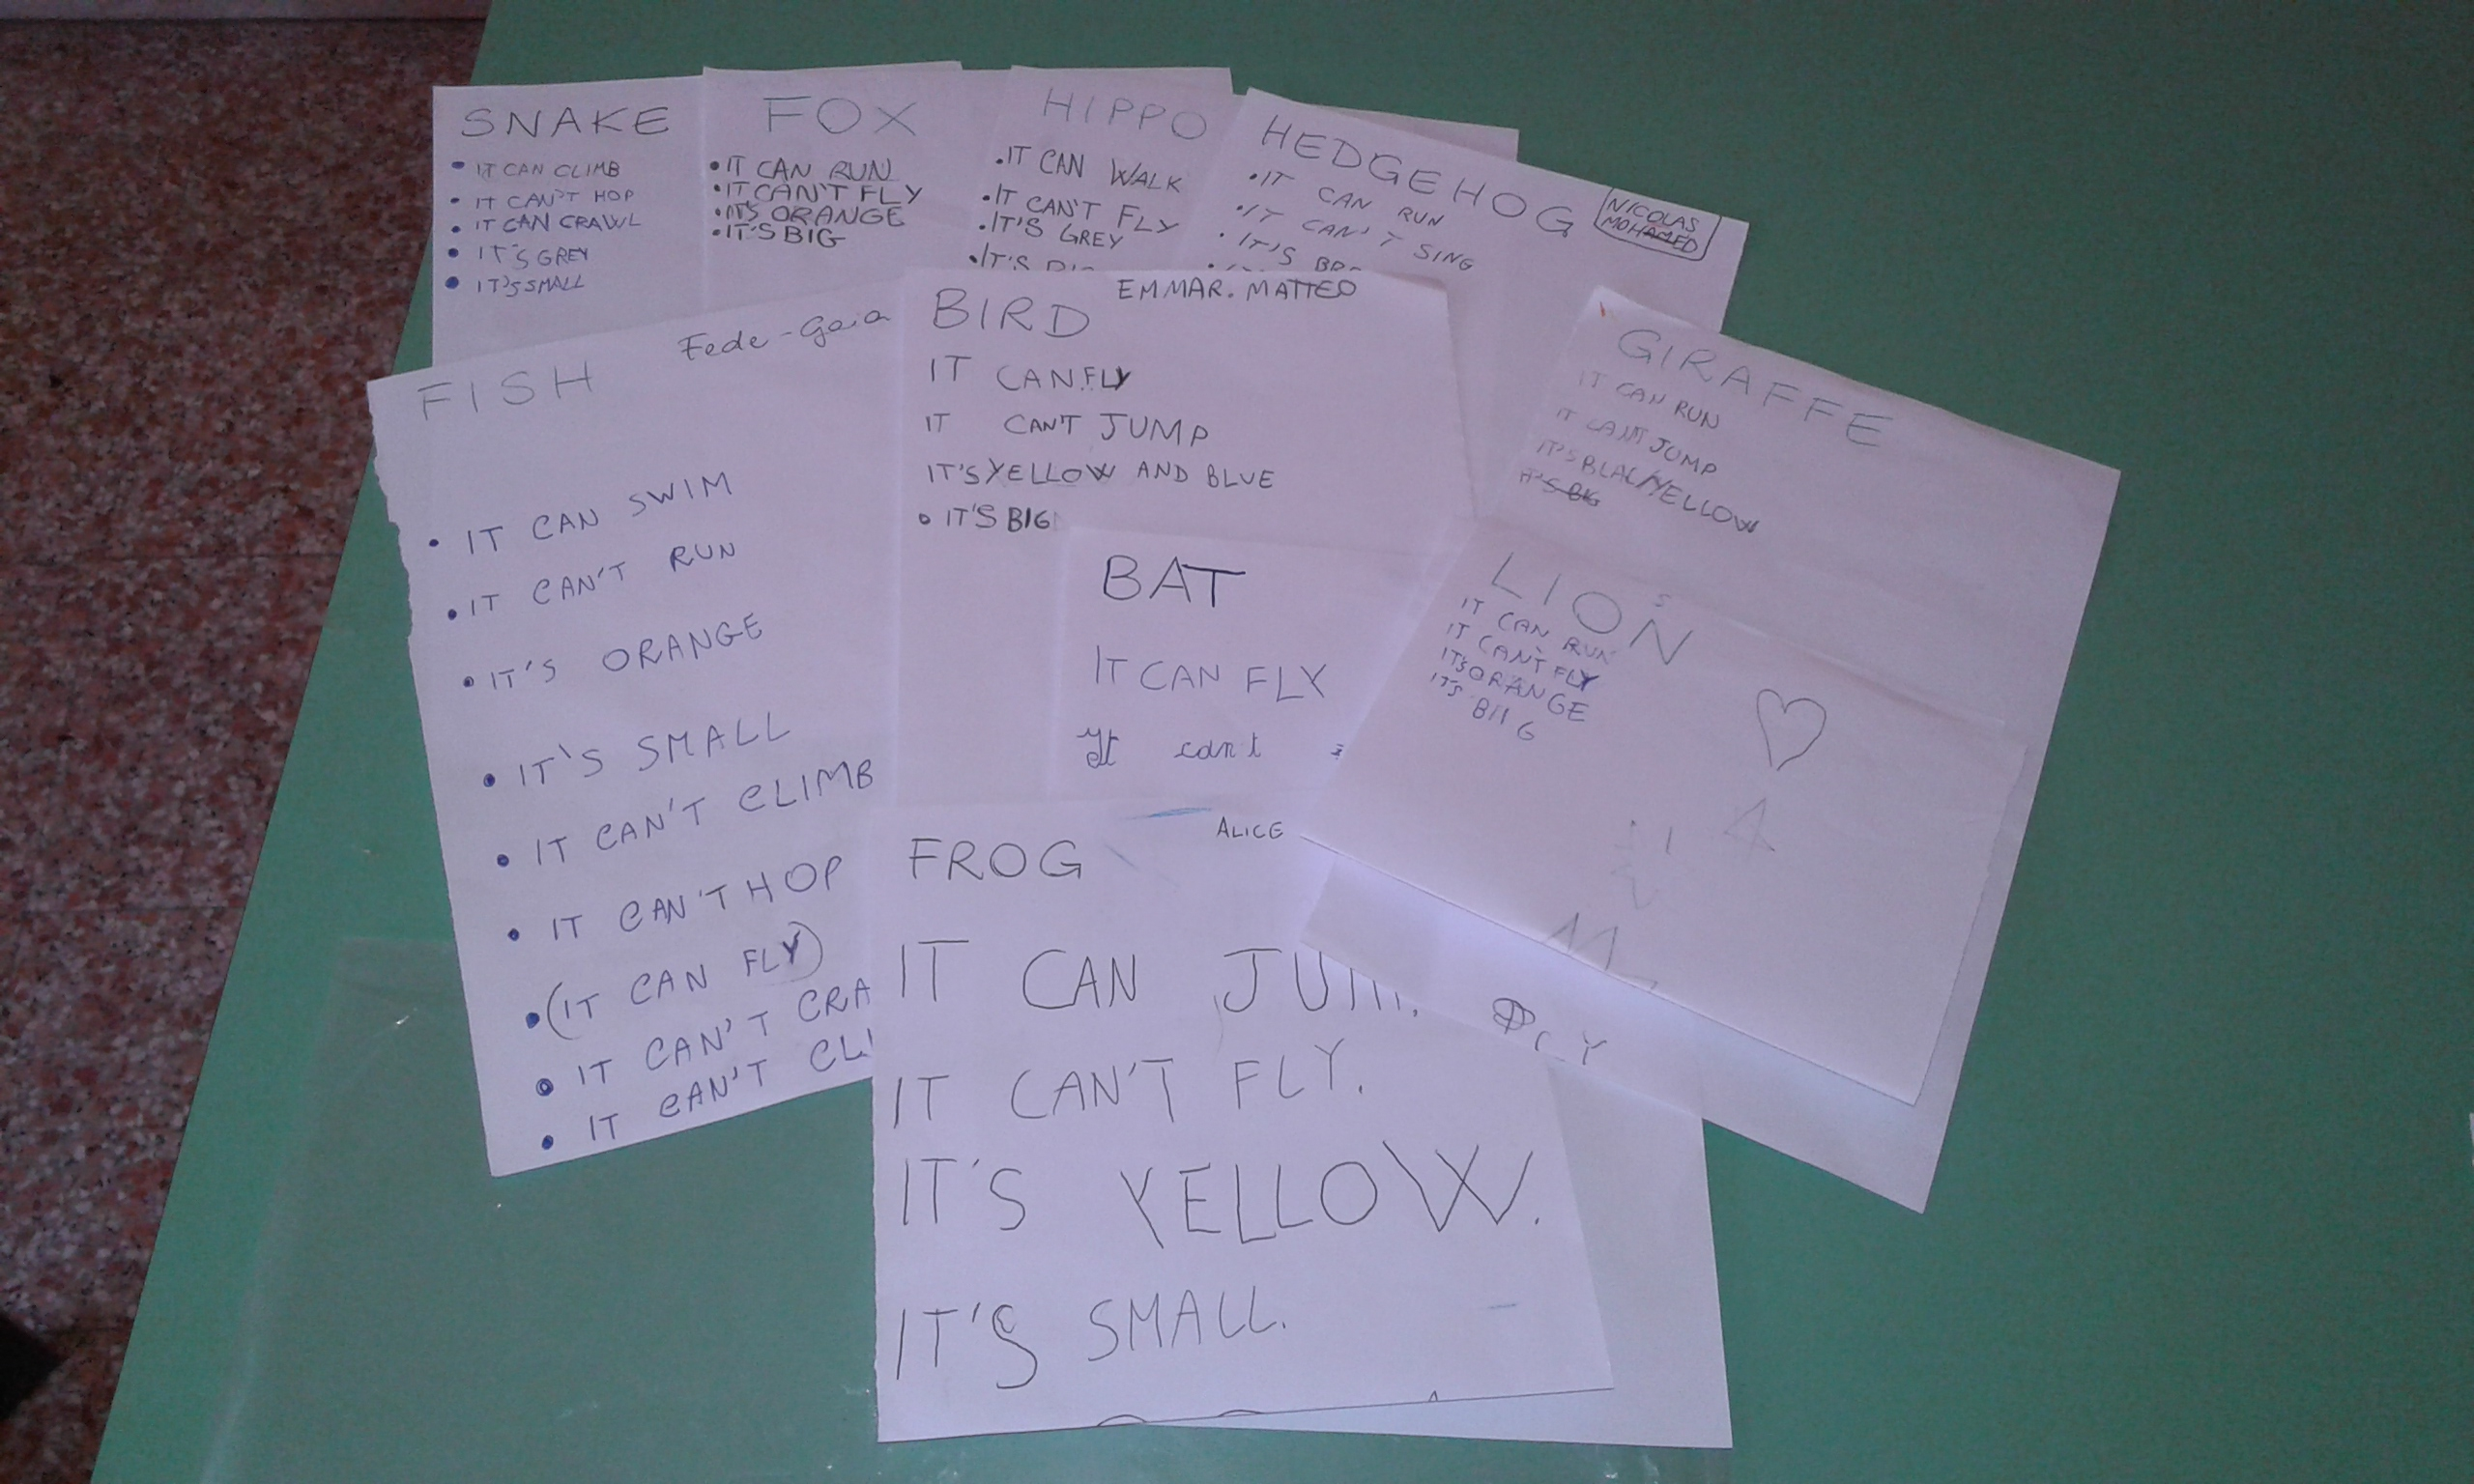 SNAKE
• IT CAN CLIMB
• IT CAN'T HOP
• IT CAN CRAWL
• IT'S GREY
• IT'S SMALL
FOX
• IT CAN RUN
• IT CAN'T FLY
• IT'S ORANGE
• IT'S BIG
HIPPO
• IT CAN WALK
• IT CAN'T FLY
• IT'S GREY
• IT'S
HEDGEHOG
NICOLAS
MOHAMED
• IT CAN RUN
• IT CAN'T SING
• IT'S
FISH
Fede-Gaia
• IT CAN SWIM
• IT CAN'T RUN
• IT'S ORANGE
• IT'S SMALL
• IT CAN'T CLIMB
• IT CAN'T HOP
• (IT CAN FLY)
• IT CAN'T CRA
• IT CAN'T CLI
EMMAR. MATTEO
BIRD
IT CAN FLY
IT CAN'T JUMP
IT'S YELLOW AND BLUE
• IT'S BIG
BAT
IT CAN FLY
It can't
GIRAFFE
IT CAN RUN
IT CAN'T JUMP
IT'S BLAC/YELLOW
IT'S BIG
LION
S
IT CAN RUN
IT CAN'T FLY
IT'S ORANGE
IT'S BIIG
ALICE
FROG
IT CAN JUM.
IT CAN'T FLY.
IT'S YELLOW.
IT'S SMALL.